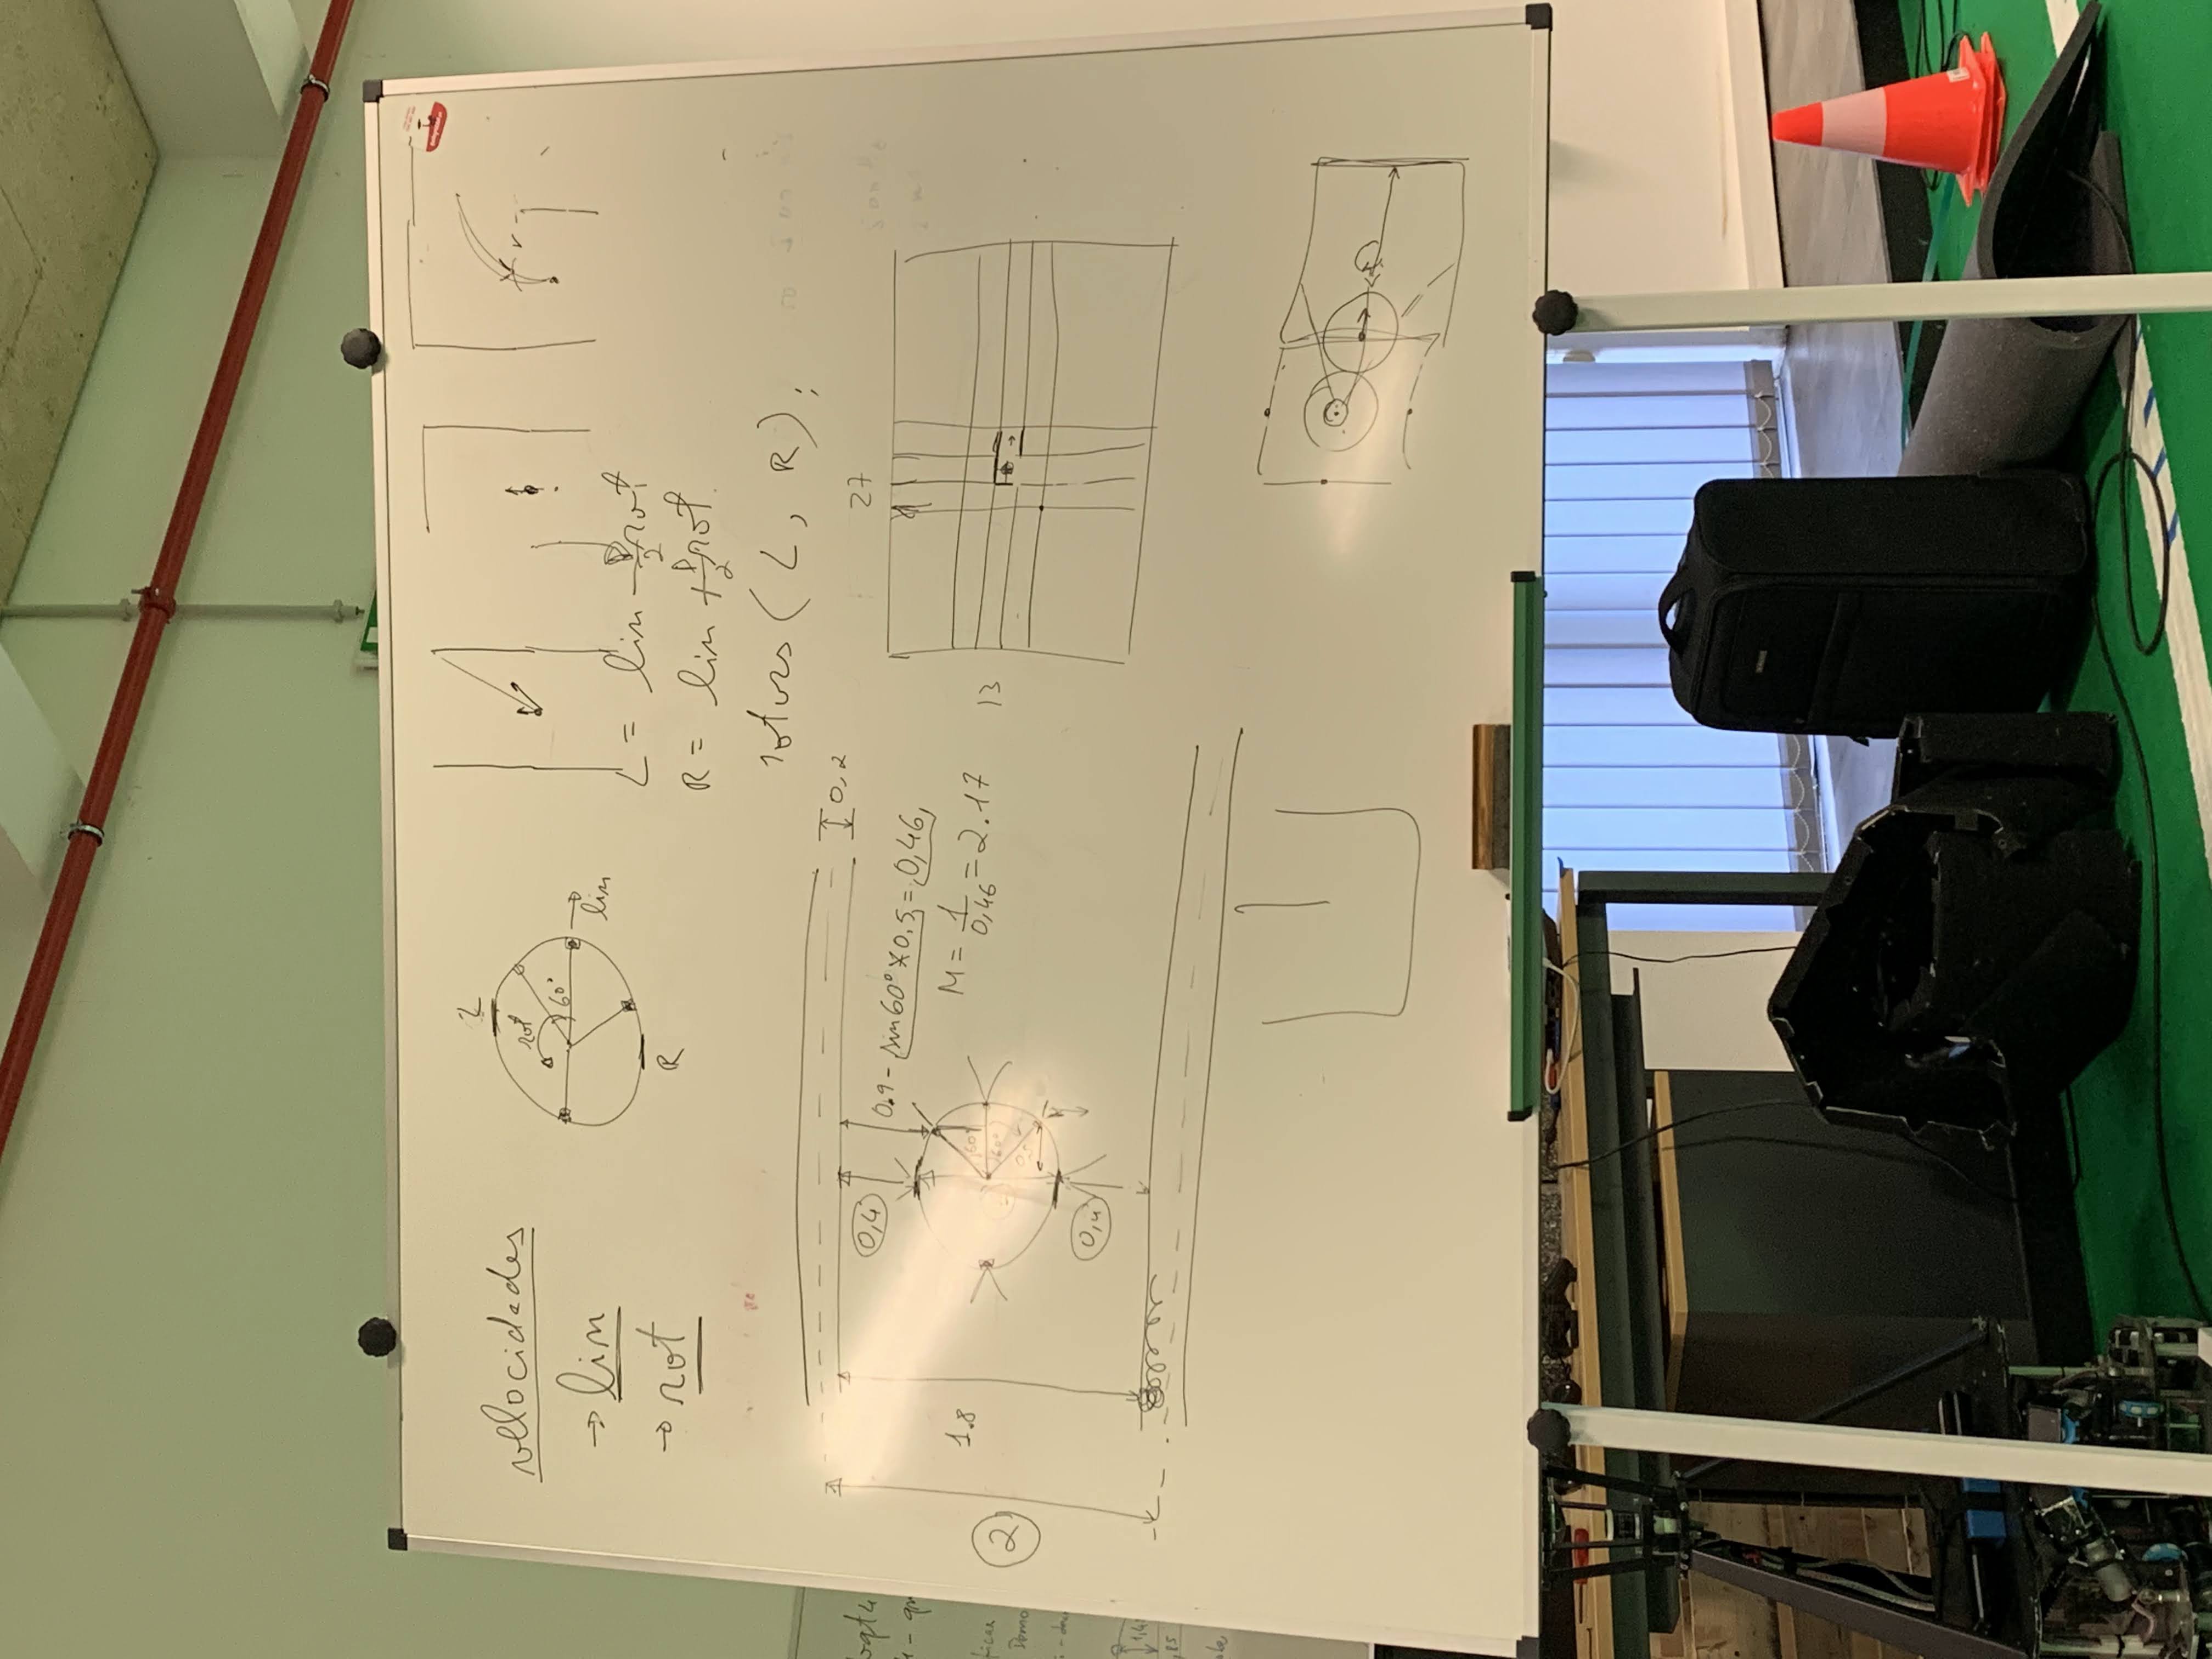 velocidades
→ lim
→ rot
L
rot
60°
lim
R
r
L = lim - D/2 rot
R = lim + D/2 rot
rotors (L, R);
0,2
0,4
0.9 - sin60° * 0,5 = 0,46
M = 1/0,46 = 2.17
1.8
2
60°
60°
0,5
0,4
27
13